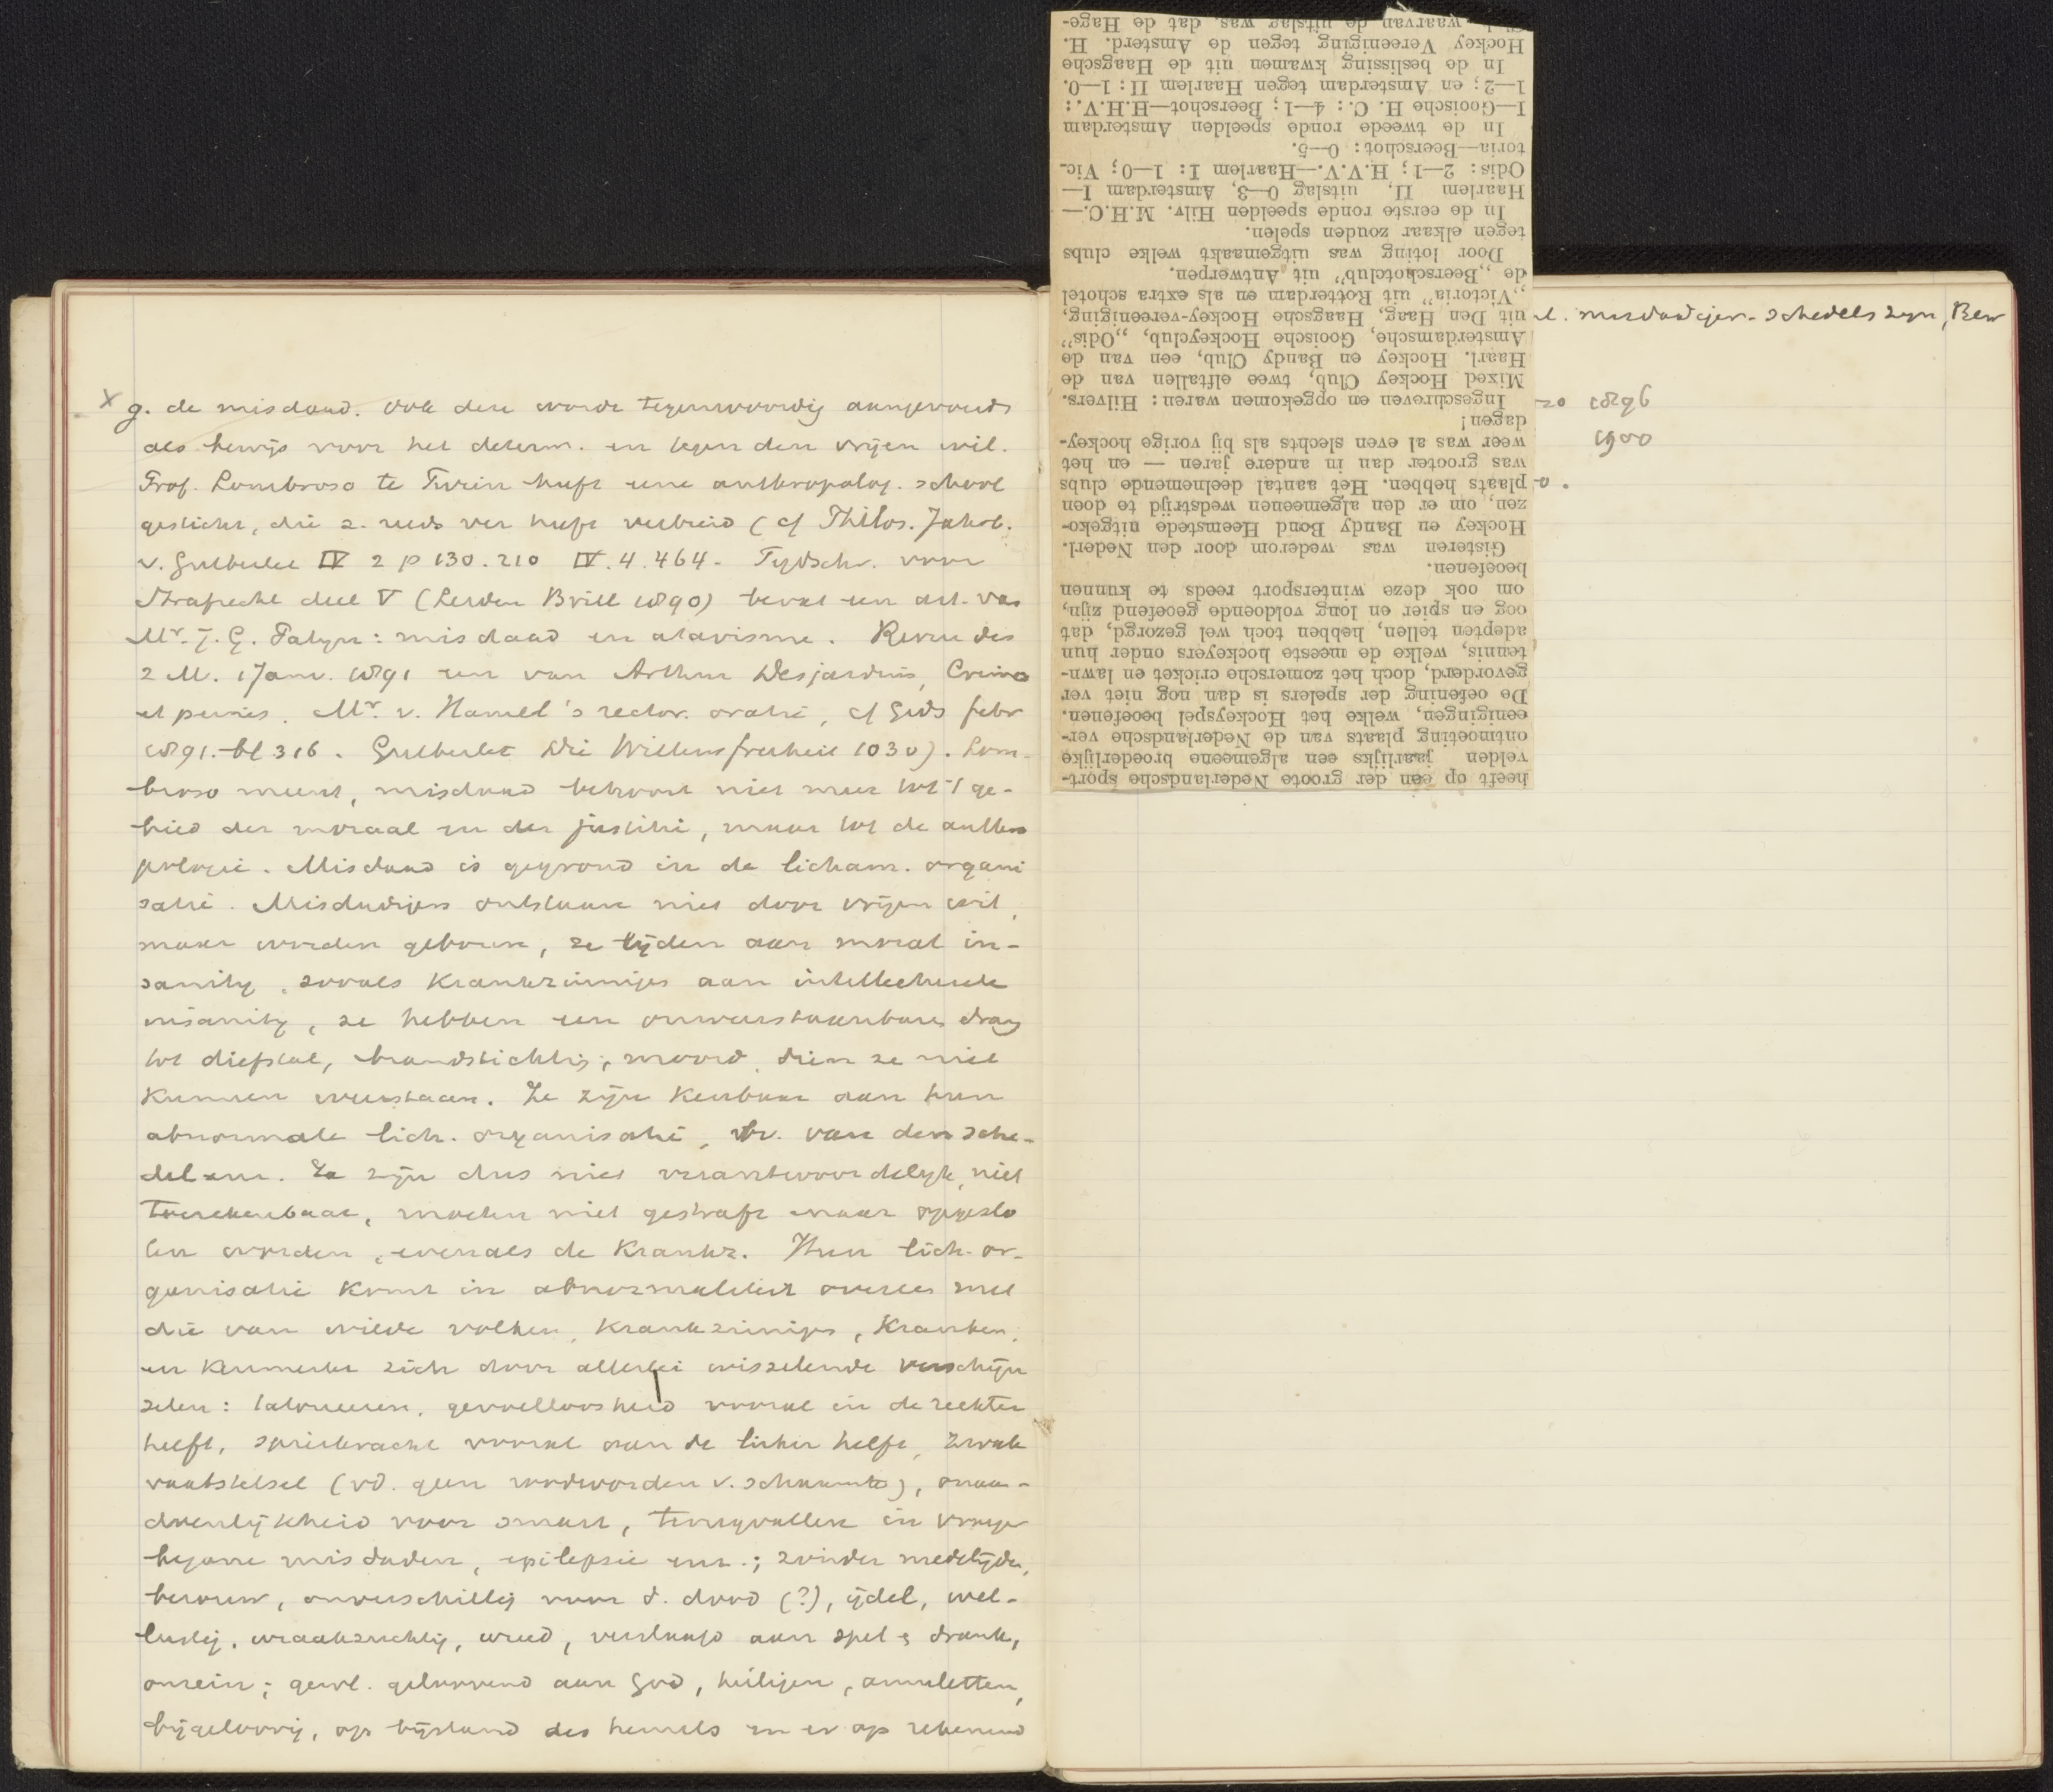 x g. de misdaad. Ook deze wordt tegenwoordig aangevoerd
als bewijs voor het determ. en tegen den vrijen wil.
Prof. Lombroso te Turin heeft eene anthropolog. school
gesticht, die z. reeds ver heeft verbreid (cf Philos. Jahrb.
v. Gutberlet IV 2 p 130. 210 IV. 4. 464. Tijdschr. voor
Strafrecht deel V (Leiden Brill 1890) bevat een art. van
Mr. J. G. Patijn: misdaad en atavisme. Revue des
2 M. 1 Janv. 1891 een van Arthur Desjardins, Crimes
et peines. Mr. v. Hamel's rector. oratie, cf Gids febr
1891. bl 316. Gutberlet Die Willensfreiheit 1030). Lom-
broso meent, misdaad behoort niet meer tot 't ge-
bied der moraal en der justitie, maar tot de anthro
pologie. Misdaad is gegrond in de licham. organi
satie. Misdadigers ontstaan niet door vrijen wil,
maar worden geboren, ze lijden aan moral in-
sanity, zooals krankzinnigen aan intellectueele
insanity, ze hebben een onweerstaanbaren drang
tot diefstal, brandstichting, moord, dien ze niet
kunnen weerstaan. Ze zijn kenbaar aan hun
abnormale lich. organisatie, bv. van den sche-
del enz. Ze zijn dus niet verantwoordelijk, niet
toerekenbaar, moeten niet gestraft maar opgeslo
ten worden, evenals de krankz. Hun lich. or-
ganisatie komt in abnormaliteit overeen met
die van wilde volken, krankzinnigen, kranken,
en kenmerkt zich door allerlei wisselende verschijn
selen: tatoueeren, gevoelloosheid vooral in de rechter
helft, spierkracht vooral aan de linker helft, zwak
vaatstelsel (vd. geen roodworden v. schaamte), onaan-
doenlijkheid voor smart, terugvallen in vroeger
begane misdaden, epilepsie enz.; zonder medelijden,
berouw, onverschillig voor d. dood (?), ijdel, wel-
lustig, wraakzuchtig, wreed, verslaafd aan spel & drank,
onrein; gewl. geloovend aan God, heiligen, amuletten,
bijgeloovig, op bijstand des hemels en er op rekenend
misdadiger-schedels zijn, Ben
1896
1900
heeft op een der groote Nederlandsche sport-
velden jaarlijks een algemeene broederlijke
ontmoeting plaats van de Nederlandsche ver-
eenigingen, welke het Hockeyspel beoefenen.
De oefening der spelers is dan nog niet ver
gevorderd, doch het zomersche cricket en lawn-
tennis, welke de meeste hockeyers onder hun
adepten tellen, hebben toch wel gezorgd, dat
oog en spier en long voldoende geoefend zijn,
om ook deze wintersport reeds te kunnen
beoefenen.
Gisteren was wederom door den Nederl.
Hockey en Bandy Bond Heemstede uitgeko-
zen, om er den algemeenen wedstrijd te doen
plaats hebben. Het aantal deelnemende clubs
was grooter dan in andere jaren — en het
weer was al even slechts als bij vorige hockey-
dagen!
Ingeschreven en opgekomen waren: Hilvers.
Mixed Hockey Club, twee elftallen van de
Haarl. Hockey en Bandy Club, een van de
Amsterdamsche, Gooische Hockeyclub, „Odis”
uit Den Haag, Haagsche Hockey-vereeniging,
„Victoria” uit Rotterdam en als extra schotel
de „Beerschotclub” uit Antwerpen.
Door loting was uitgemaakt welke clubs
tegen elkaar zouden spelen.
In de eerste ronde speelden Hilv. M.H.C.—
Haarlem II, uitslag 0—3, Amsterdam I—
Odis: 2—1; H.V.V.—Haarlem I: 1—0; Vic-
toria—Beerschot: 0—5.
In de tweede ronde speelden Amsterdam
I—Gooische H. C.: 4—1; Beerschot—H.H.V.:
1—2; en Amsterdam tegen Haarlem II: 1—0.
In de beslissing kwamen uit de Haagsche
Hockey Vereeniging tegen de Amsterd. H.
waarvan de uitslag was, dat de Hage-